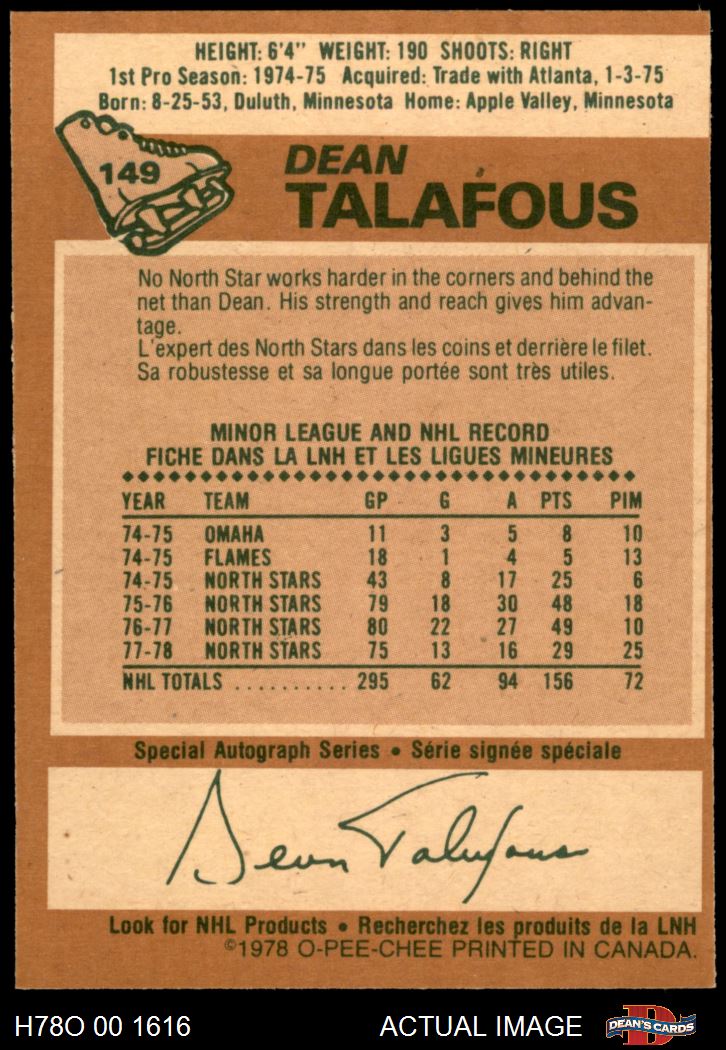 HEIGHT: 6'4" WEIGHT: 190 SHOOTS: RIGHT
1st Pro Season: 1974-75 Acquired: Trade with Atlanta, 1-3-75
Born: 8-25-53, Duluth, Minnesota Home: Apple Valley, Minnesota
149
DEAN
TALAFOUS
No North Star works harder in the corners and behind the
net than Dean. His strength and reach gives him advan-
tage.
L'expert des North Stars dans les coins et derrière le filet.
Sa robustesse et sa longue portée sont très utiles.
MINOR LEAGUE AND NHL RECORD
FICHE DANS LA LNH ET LES LIGUES MINEURES
YEAR TEAM GP G A PTS PIM
74-75 OMAHA 11 3 5 8 10
74-75 FLAMES 18 1 4 5 13
74-75 NORTH STARS 43 8 17 25 6
75-76 NORTH STARS 79 18 30 48 18
76-77 NORTH STARS 80 22 27 49 10
77-78 NORTH STARS 75 13 16 29 25
NHL TOTALS .......... 295 62 94 156 72
Special Autograph Series • Série signée spéciale
Dean Talafous
Look for NHL Products • Recherchez les produits de la LNH
©1978 O-PEE-CHEE PRINTED IN CANADA.
H78O 00 1616 ACTUAL IMAGE D DEAN'S CARDS